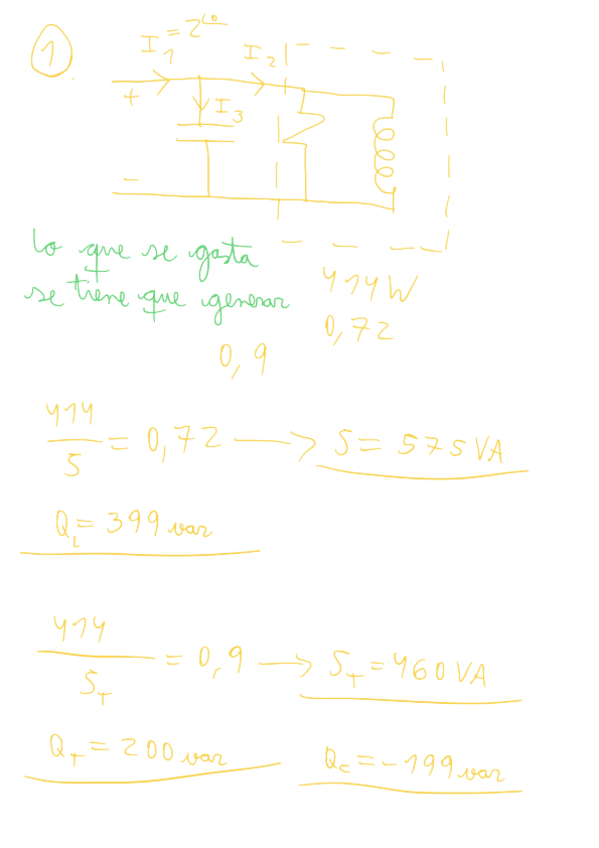 1
I₁ = 2∠0
I₂
+
I₃
-
lo que se gasta
se tiene que generar
414 W
0,72
0,9
414/S = 0,72 → S = 575 VA
Q_L = 399 var
414/S_T = 0,9 → S_T = 460 VA
Q_T = 200 var
Q_C = -199 var